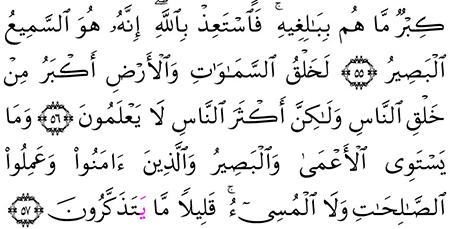 كِبْرٌ مَّا هُم بِبَٰلِغِيهِ ۚ فَٱسْتَعِذْ بِٱللَّهِ ۖ إِنَّهُۥ هُوَ ٱلسَّمِيعُ
ٱلْبَصِيرُ ۝٥٥ لَخَلْقُ ٱلسَّمَٰوَٰتِ وَٱلْأَرْضِ أَكْبَرُ مِنْ
خَلْقِ ٱلنَّاسِ وَلَٰكِنَّ أَكْثَرَ ٱلنَّاسِ لَا يَعْلَمُونَ ۝٥٦ وَمَا
يَسْتَوِى ٱلْأَعْمَىٰ وَٱلْبَصِيرُ وَٱلَّذِينَ ءَامَنُوا۟ وَعَمِلُوا۟
ٱلصَّٰلِحَٰتِ وَلَا ٱلْمُسِىٓءُ ۚ قَلِيلًا مَّا يَتَذَكَّرُونَ ۝٥٧